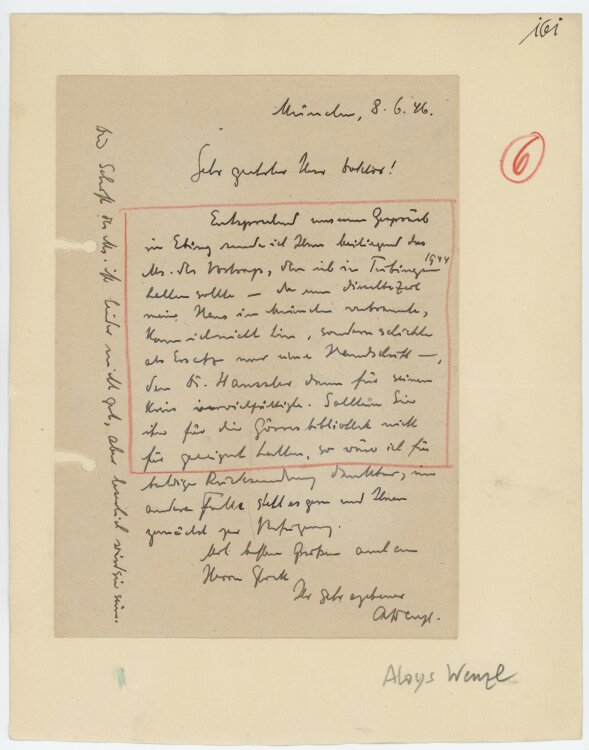 161
6
München, 8.6.46.
Sehr geehrter Herr Doktor!
Entsprechend unserem Gespräch
in Ebing sende ich Ihnen beiliegend das
Ms. des Vortrags, den ich in Tübingen 1944
halten sollte — da um dieselbe Zeit
mein Haus in München verbrannte,
kam ich nicht hin, sondern schickte
als Ersatz nur eine Handschrift —,
den Dr. Haussler dann für seinen
Kreis vervielfältigte. Sollten Sie
ihn für die Görresbibliothek nicht
für geeignet halten, so wäre ich für
baldige Rücksendung dankbar, im
anderen Falle steht es gern und Ihnen
zunächst zur Verfügung.
Mit besten Grüßen auch an
Herrn Glock
Ihr sehr ergebener
AWenzl.
Die Schrift des Ms. ist leider nicht gut, aber wird sie sein.
Aloys Wenzl